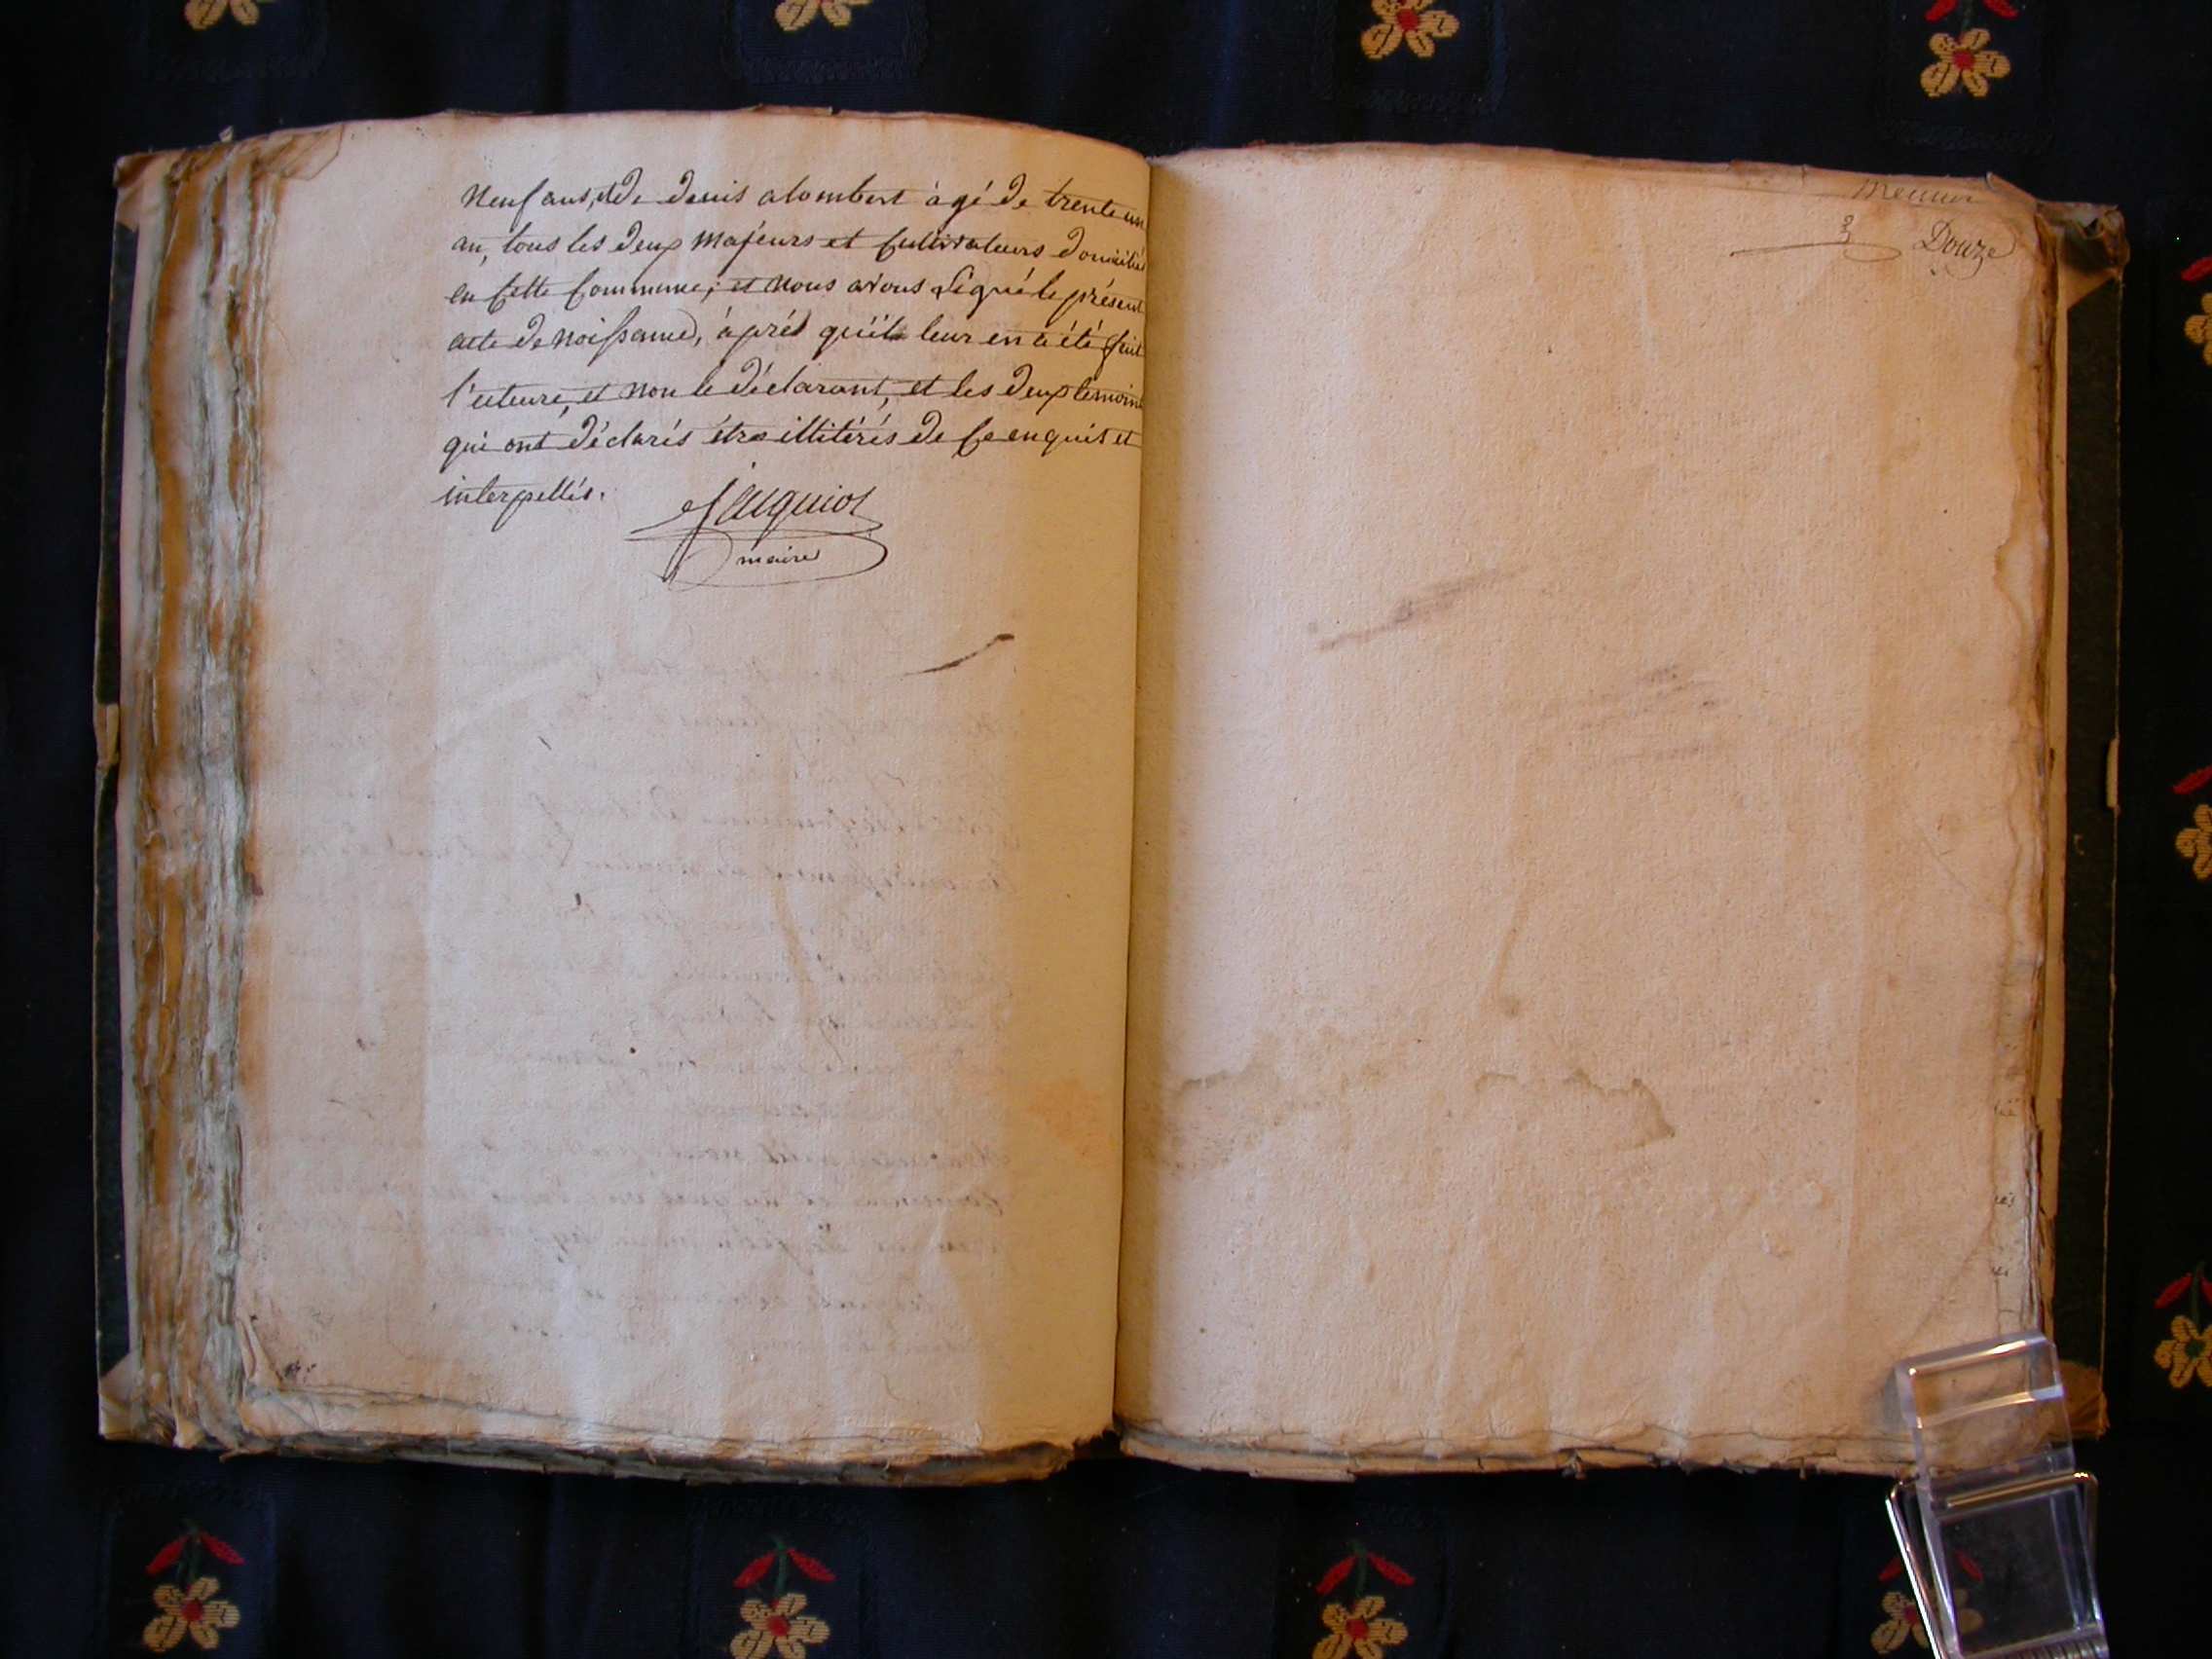 Neuf ans, et de denis alombert àgé de trente un
an, tous les deux majeurs et Cultivateurs domiciliés
en Cette Commune; et nous avons Signé le présent
acte de noissance, àprés qu'il leur en a été fait
l'ecteure, et non le déclarant, et les deux temoins
qui ont déclarés étre illitérés de Ce enquis et
interpellés.
Jacquiot
maire
Meunier
Douze